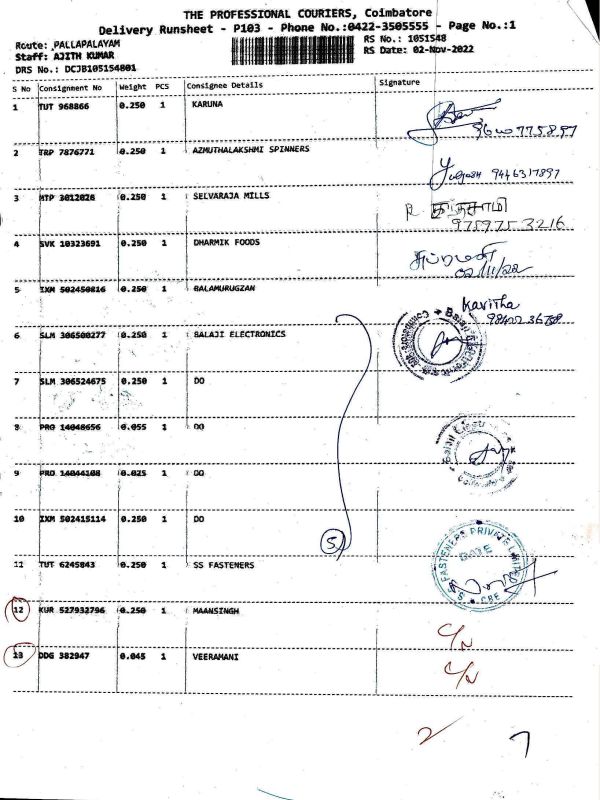 THE PROFESSIONAL COURIERS, Coimbatore
Delivery Runsheet - P103 - Phone No.:0422-3505555 - Page No.:1
Route: PALLAPALAYAM
RS No.: 1051548
Staff: AJITH KUMAR
RS Date: 02-Nov-2022
DRS No.: DCJB105154801
S No Consignment No Weight PCS Consignee Details Signature
1 TUT 968866 0.250 1 KARUNA
2 TRP 7876771 0.250 1 AZMUTHALAKSHMI SPINNERS
9446317897
3 MTP 3012026 0.250 1 SELVARAJA MILLS
R கந்தசாமி
975975 3216
4 SVK 10323691 0.250 1 DHARMIK FOODS
சுப்ரமணி
02/11/22
5 IXM 502450816 0.250 1 BALAMURUGZAN
Kavitha
6 SLM 306500277 0.250 1 BALAJI ELECTRONICS
7 SLM 306524675 0.250 1 DO
8 PRO 14048656 0.055 1 DO
9 PRO 14044108 0.025 1 DO
10 IXM 502415114 0.250 1 DO
5
11 TUT 6245843 0.250 1 SS FASTENERS
S.S FASTENERS PRIVATE LIMITED
DATE
CBE
12 KUR 527932796 0.250 1 MAANSINGH
C/N
13 DDG 382947 0.045 1 VEERAMANI
C/N
2 7